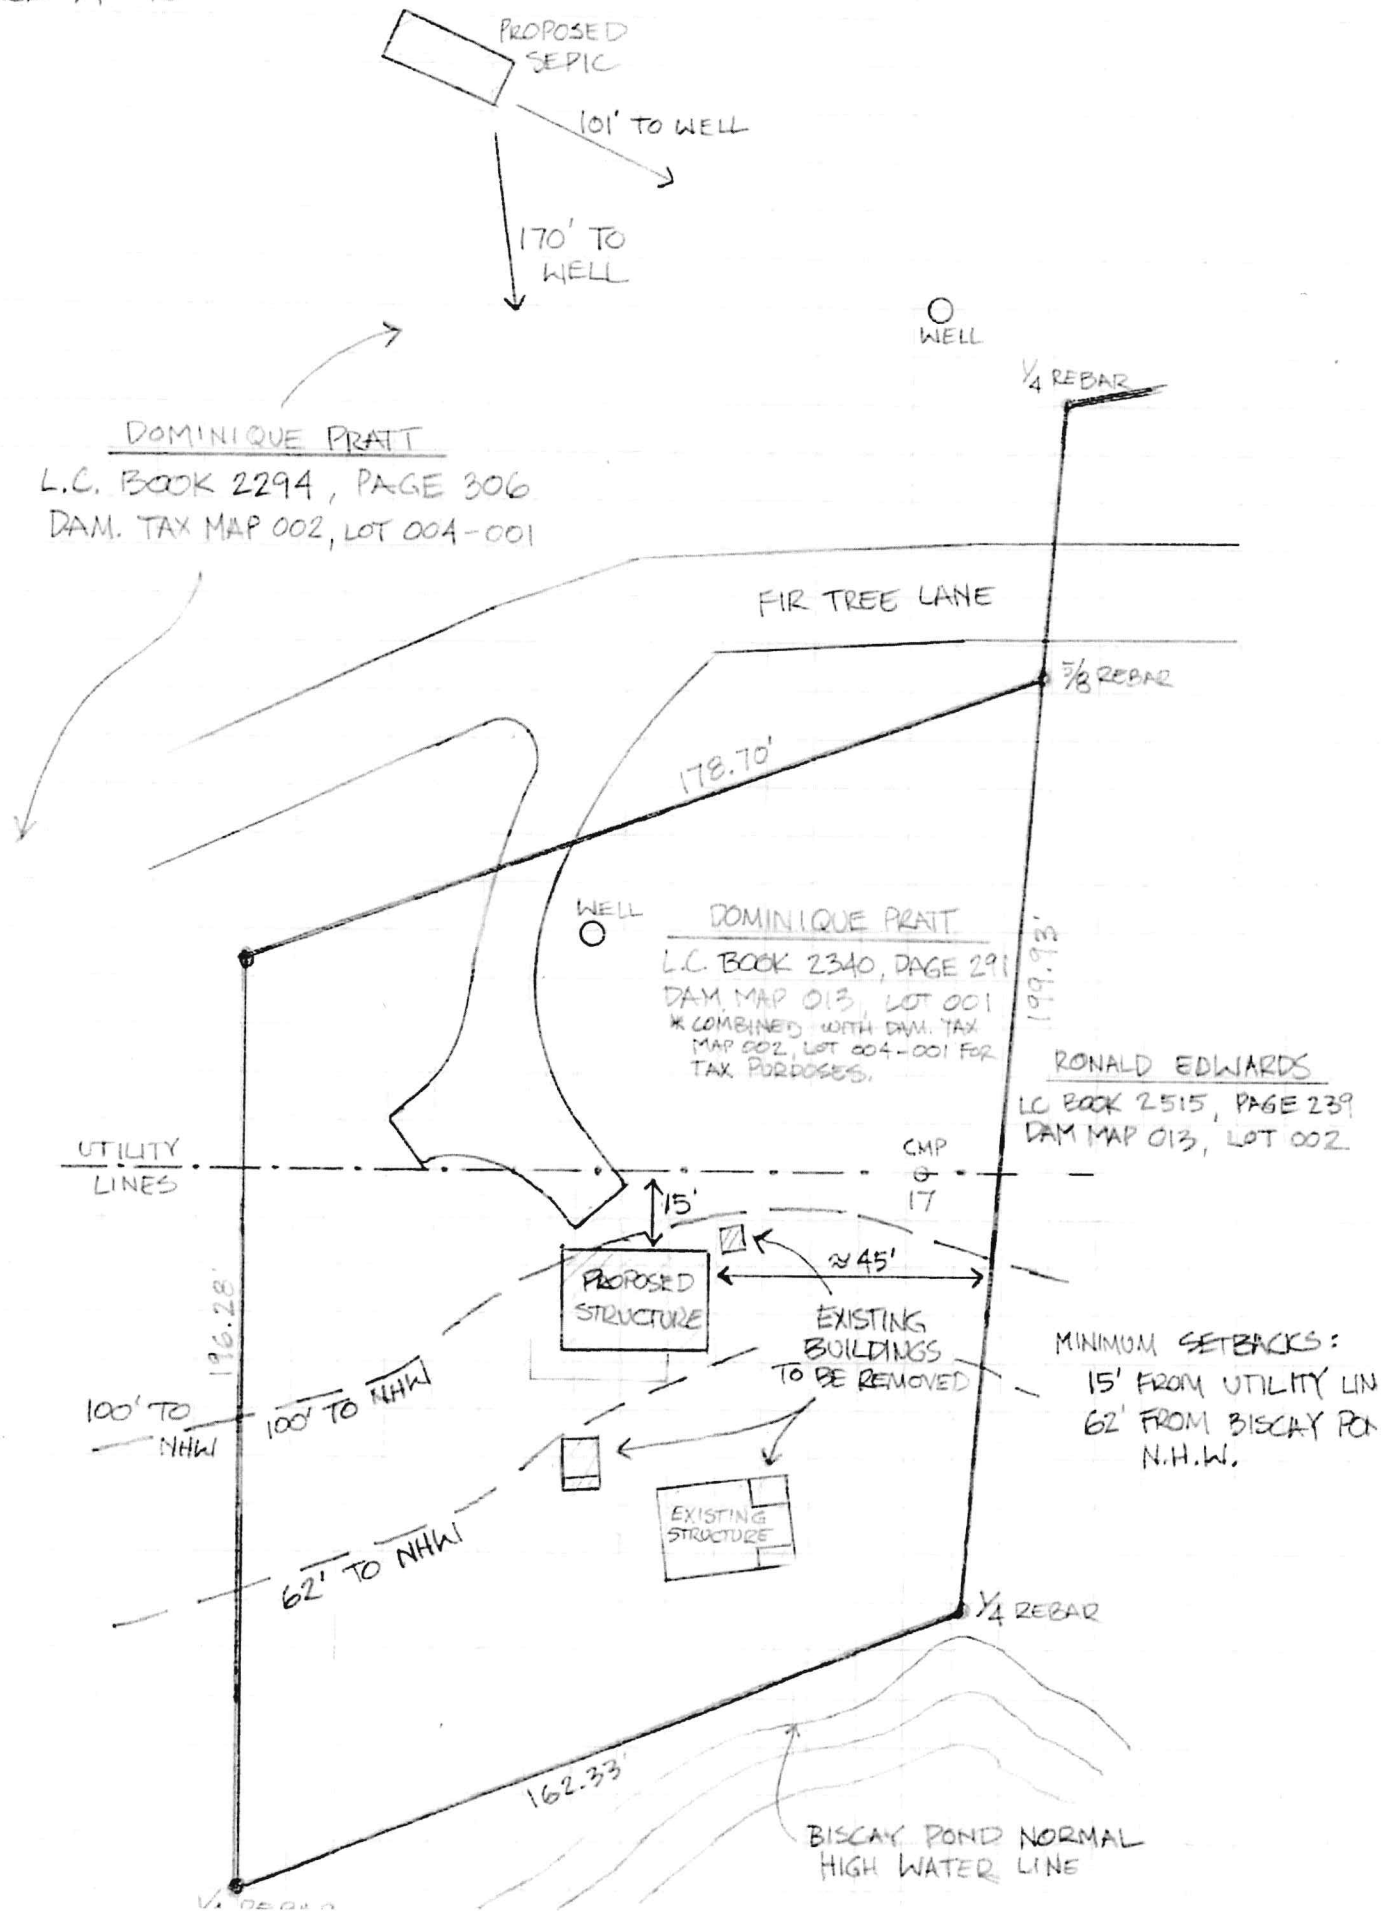 PROPOSED
SEPIC
101' TO WELL
170' TO
WELL
WELL
1/4 REBAR
DOMINIQUE PRATT
L.C. BOOK 2294, PAGE 306
DAM. TAX MAP 002, LOT 004-001
FIR TREE LANE
5/8 REBAR
178.70'
WELL
DOMINIQUE PRATT
L.C. BOOK 2340, PAGE 291
DAM. MAP 013, LOT 001
* COMBINED WITH DAM. TAX
MAP 002, LOT 004-001 FOR
TAX PURPOSES.
199.93'
RONALD EDWARDS
LC BOOK 2515, PAGE 239
DAM MAP 013, LOT 002
UTILITY
LINES
CMP
17
15'
≈45'
PROPOSED
STRUCTURE
EXISTING
BUILDINGS
TO BE REMOVED
196.28'
MINIMUM SETBACKS:
15' FROM UTILITY LIN
62' FROM BISCAY PON
N.H.W.
100' TO
NHW
100' TO NHW
62' TO NHW
EXISTING
STRUCTURE
1/4 REBAR
162.33'
BISCAY POND NORMAL
HIGH WATER LINE
1/4 REBAR